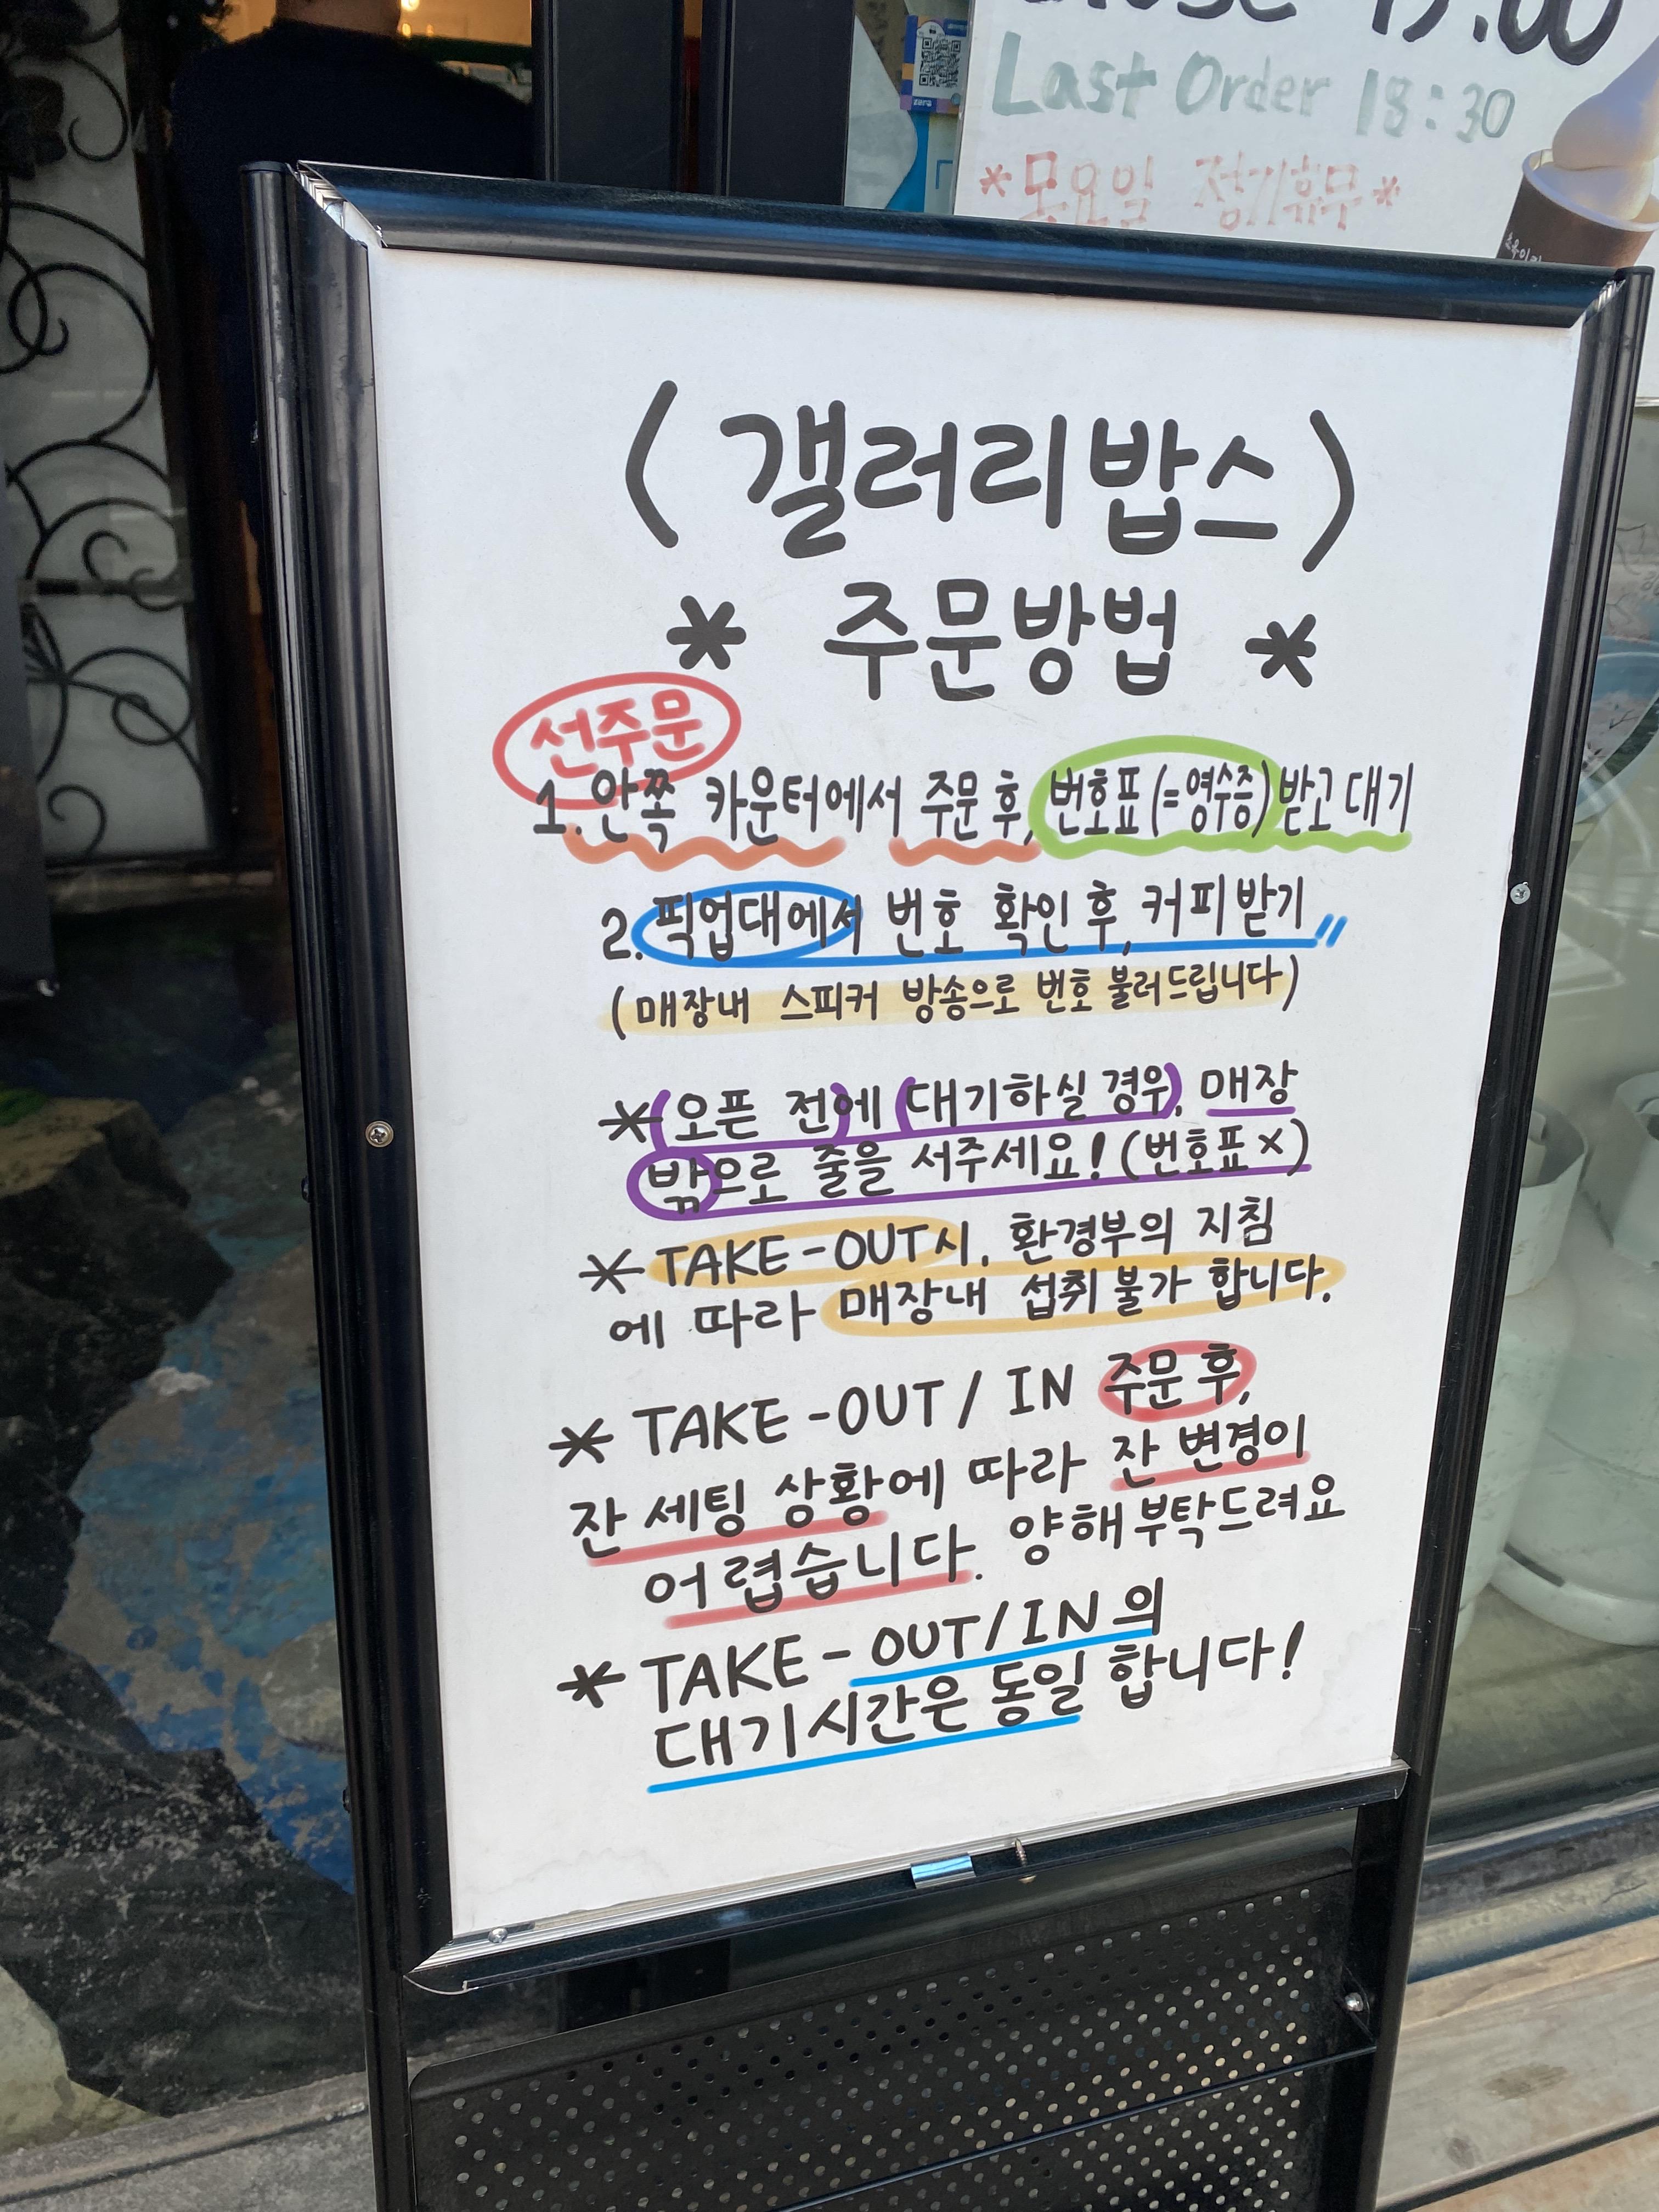 Close 19:00
Last Order 18:30
*목요일 정기휴무*
zero
〈갤러리밥스〉
* 주문방법 *
선주문
1. 안쪽 카운터에서 주문 후, 번호표(=영수증)받고 대기
2. 픽업대에서 번호 확인 후, 커피받기〃
(매장내 스피커 방송으로 번호 불러드립니다)
*(오픈 전)에 (대기하실 경우), 매장
밖으로 줄을 서주세요! (번호표 x)
* TAKE-OUT시, 환경부의 지침
에 따라 매장내 섭취 불가 합니다.
* TAKE-OUT / IN 주문 후,
잔 세팅 상황에 따라 잔 변경이
어렵습니다. 양해부탁드려요
* TAKE-OUT/IN의
대기시간은 동일 합니다!